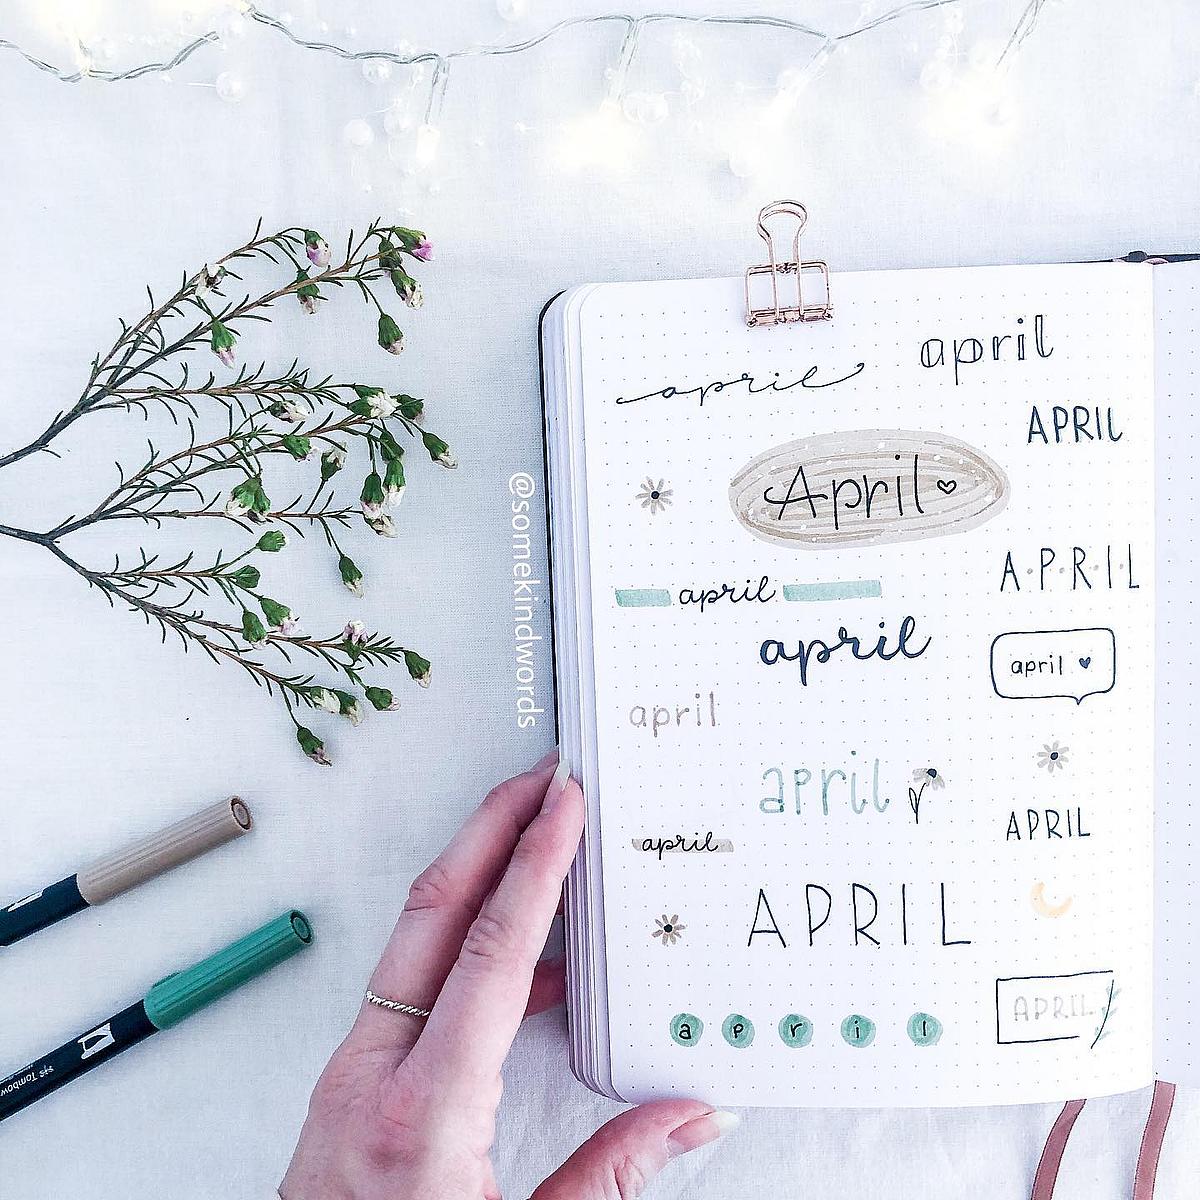 april
april
APRIL
April
A·P·R·I·L
april
april
april
april
april
APRIL
april
APRIL
APRIL
a p r i l
@somekindwords
Tombow